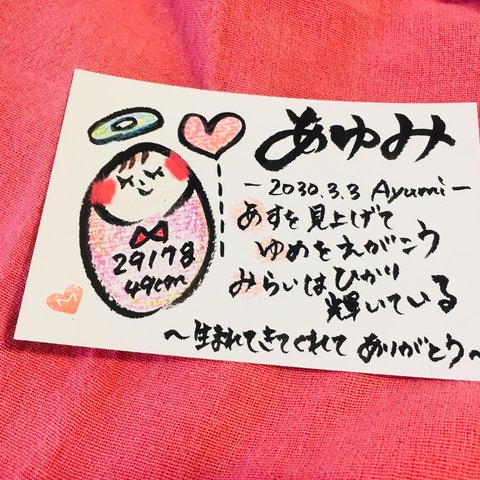 あゆみ
-2030.3.3 Ayumi-
あすを見上げて
ゆめをえがこう
みらいはひかり
輝いている
~生まれてきてくれて ありがとう~
2917g
49cm